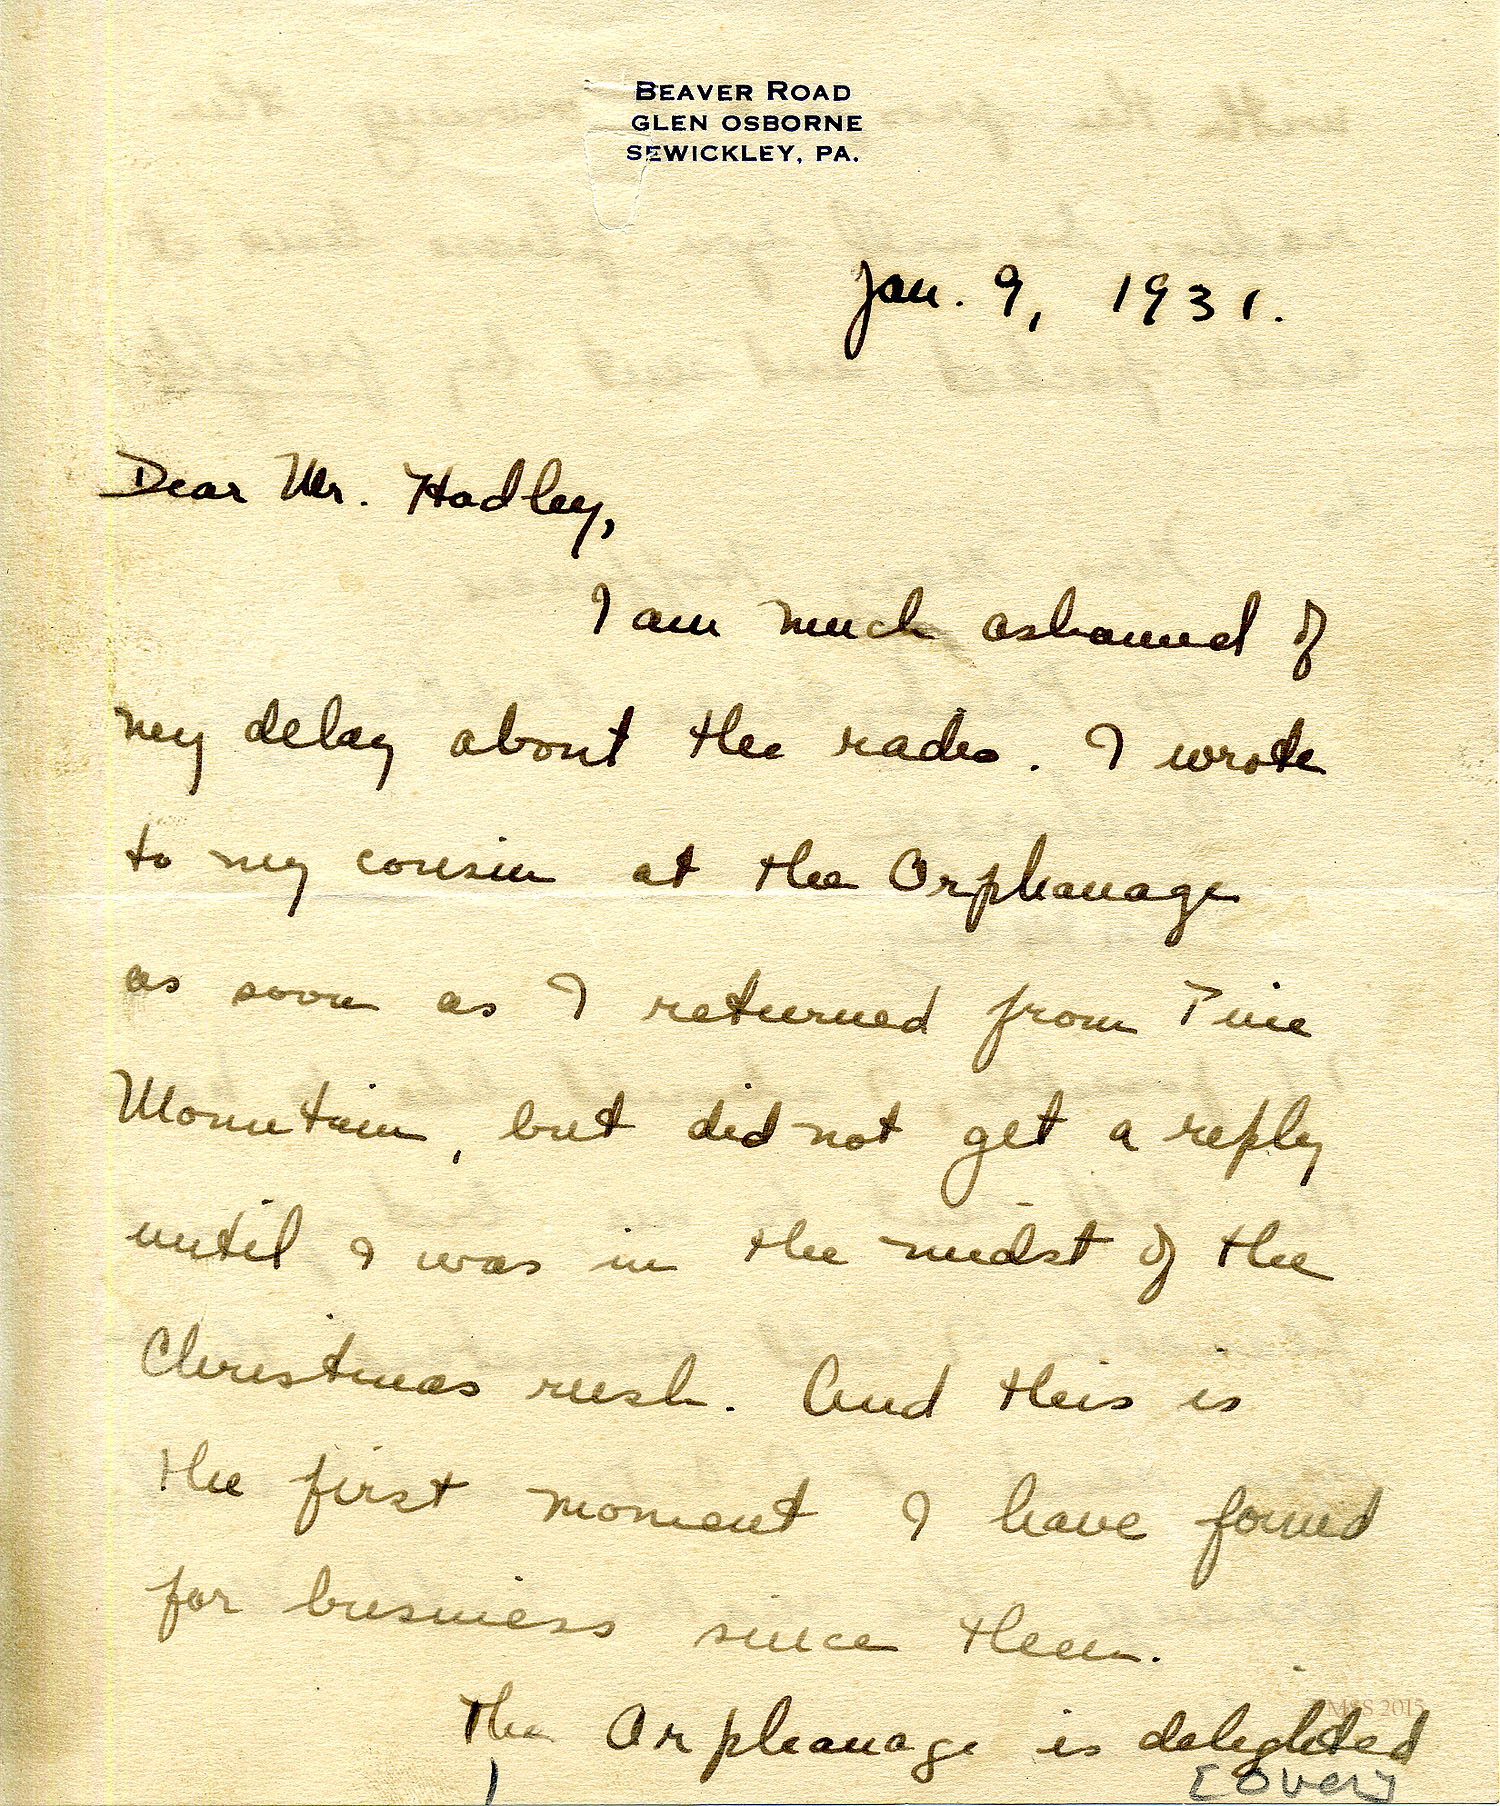 BEAVER ROAD
GLEN OSBORNE
SEWICKLEY, PA.
Jan. 9, 1931.
Dear Mr. Hadley,
I am much ashamed of
my delay about the radio. I wrote
to my cousin at the Orphanage
as soon as I returned from Pine
Mountain, but did not get a reply
until I was in the midst of the
Christmas rush. And this is
the first moment I have found
for business since then.
The Orphanage is delighted
[over]
MSS 2015